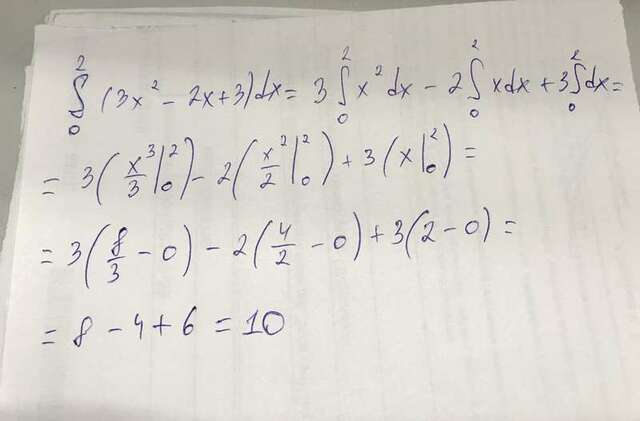 ∫₀² (3x² - 2x + 3)dx = 3∫₀² x² dx - 2∫₀² xdx + 3∫₀² dx =
= 3(x³/3|₀²) - 2(x²/2|₀²) + 3(x|₀²) =
= 3(8/3 - 0) - 2(4/2 - 0) + 3(2 - 0) =
= 8 - 4 + 6 = 10